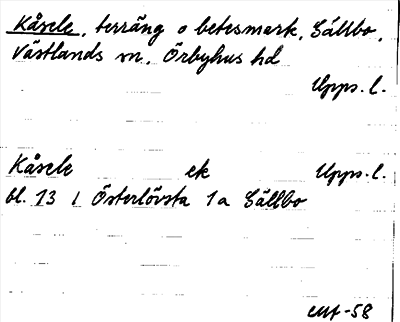 Kåsele, terräng o betesmark, Sällbo,
Västlands sn, Örbyhus hd
Upps. l.
Kåsele ek Upps. l.
bl. 13 i Österlövsta 1a Sällbo
-58